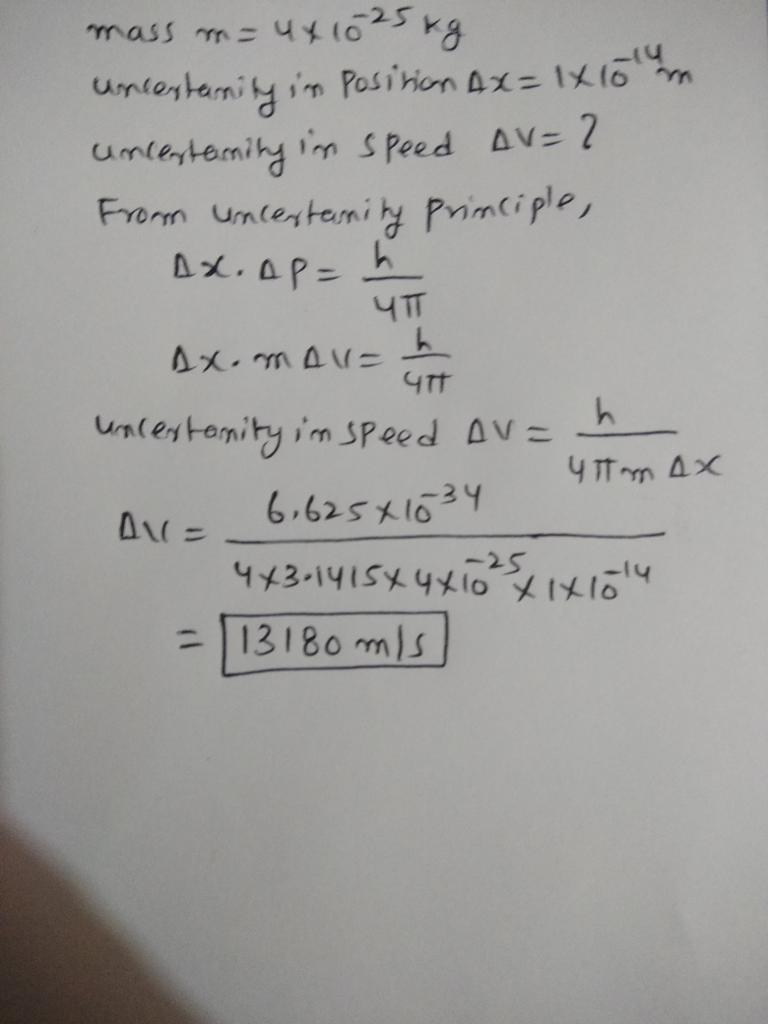 mass m = 4 × 10⁻²⁵ kg
uncertainity in Position Δx = 1 × 10⁻¹⁴ m
uncertainity in speed ΔV = ?
From uncertainity principle,
Δx. ΔP = h/4π
Δx. m ΔV = h/4π
uncertainity in speed ΔV = h/4πm Δx
ΔV = 6.625 × 10⁻³⁴/4×3.1415×4×10⁻²⁵×1×10⁻¹⁴
= 13180 m/s